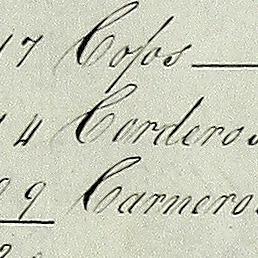 17 Cofos
14 Corderos
9 Carneros